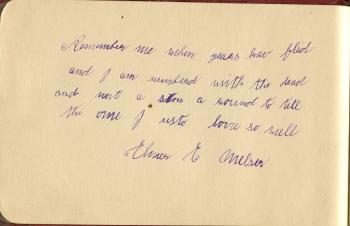 Remember me when years hav fled
and I am numberd with the dead
and not a ston a round to tell
the one I usto love so well
Elmer E